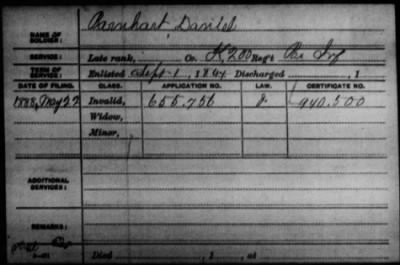 Barnhart, Daniel
NAME OF SOLDIER:
SERVICE: Late rank, Co. K, 200 Reg't Pa Inf
TERM OF SERVICE: Enlisted Sept 1, 1864 Discharged , 1
DATE OF FILING. CLASS. APPLICATION NO. LAW. CERTIFICATE NO.
1888, May 22 Invalid, 655.756 940.500
Widow,
Minor,
ADDITIONAL SERVICES:
REMARKS:
Died , 1 , at